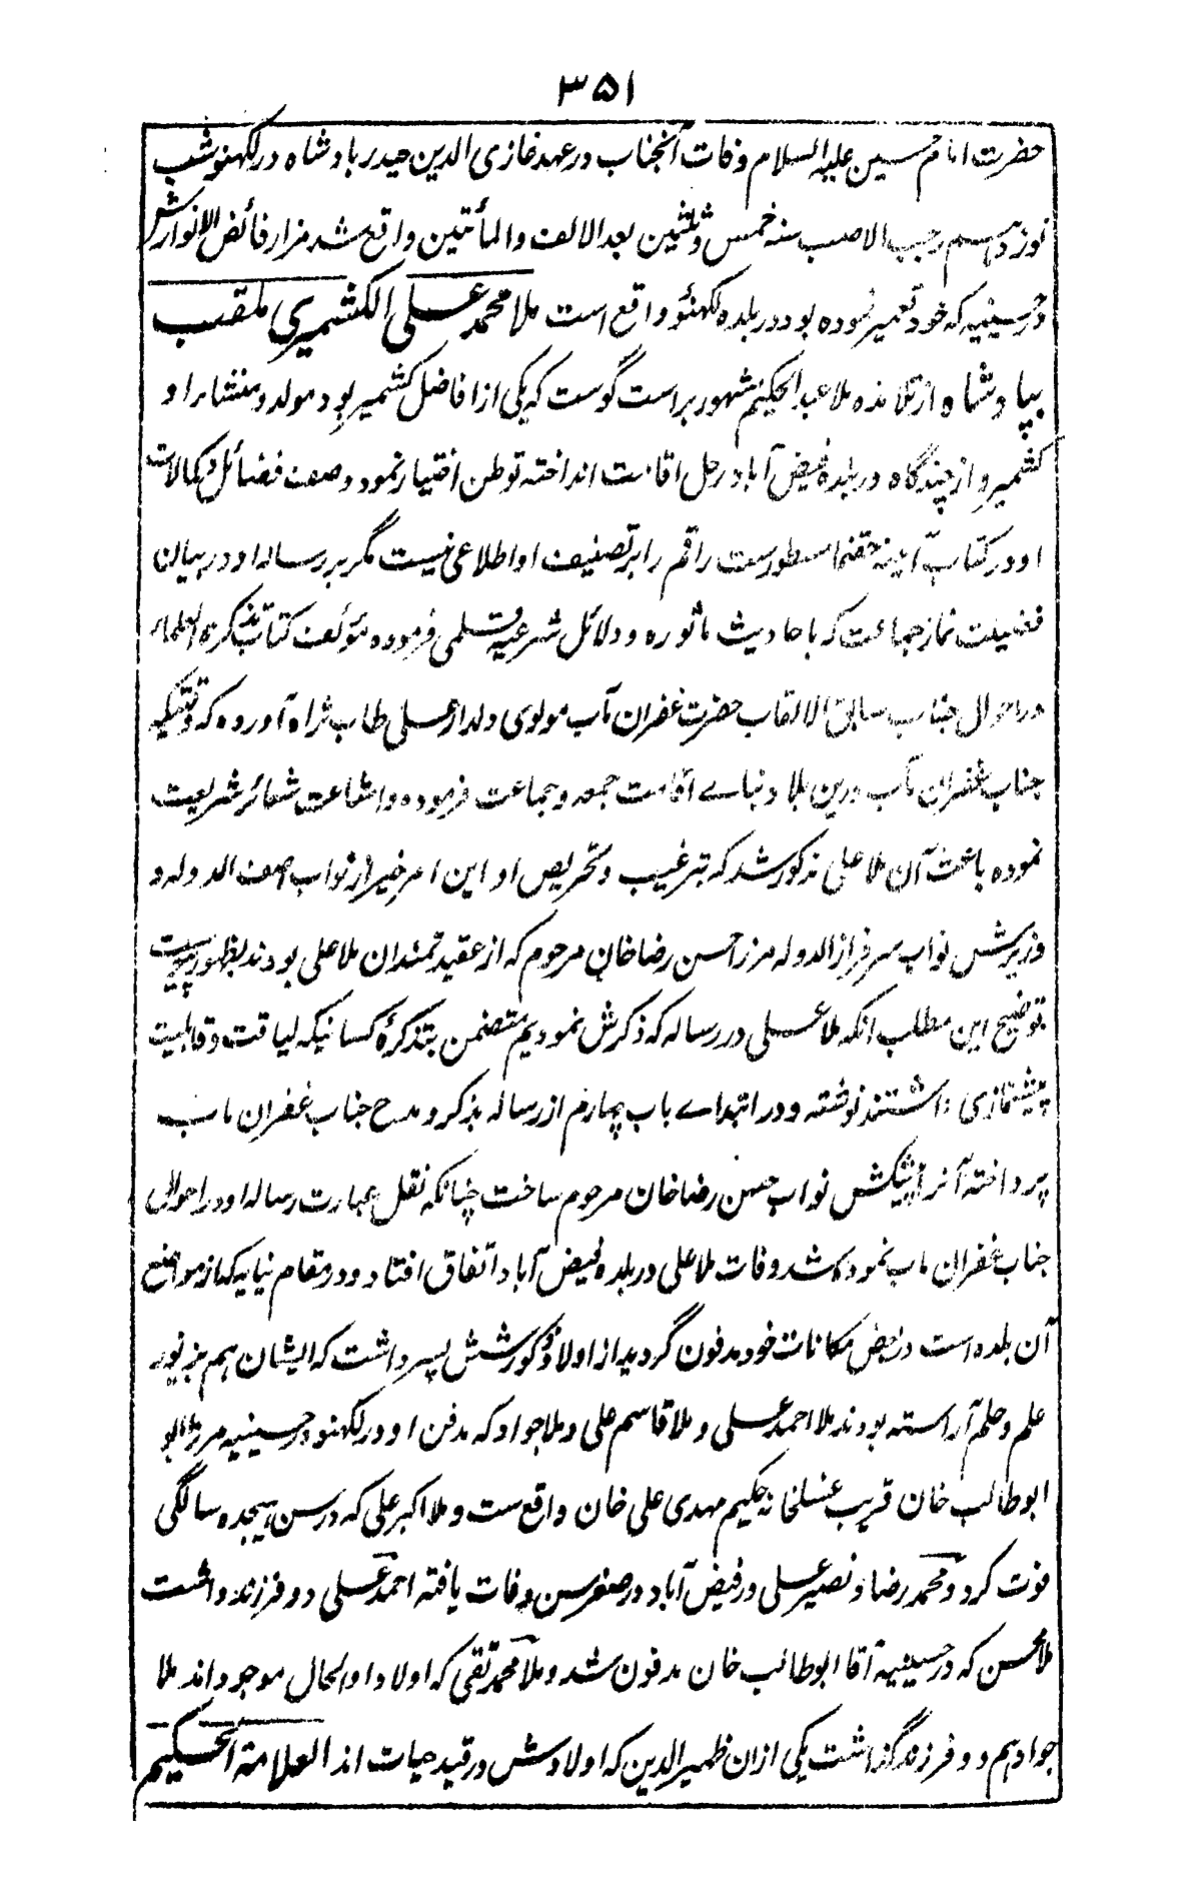 ۳۵۱
حضرت امام حسین علیه السلام وفات آنجناب در عهد غازی الدین حیدر بادشاه در لکهنو شب
نوزدهم رجب الاصب سنه خمس و ثلثین بعد الالف والمأتین واقع شد مزار فائض الانوارش
در حسینیه که خود تعمیر نموده بود در بلده لکهنؤ واقع است ملا محمد علی الکشمیری ملقب
بپادشاه از تلامذه ملا عبد الحکیم مشهور براست گوست که یکی از افاضل کشمیر بود مولد و منشاء او
کشمیر و از چندگاه در بلده فیض آباد رحل اقامت انداخته توطن اختیار نمود وصف فضائل و کمالات
او در کتاب آینه حقنما مسطورست راقم را بر تصنیف او اطلاعی نیست مگر بر رساله او در بیان
فضیلت نماز جماعت که باحادیث ماثوره و دلائل شرعیه قلمی فرموده مؤلف کتاب تذکرة العلماء
در احوال جناب سابق الالقاب حضرت غفران مآب مولوی دلدار علی طاب ثراه آورده که وقتیکه
جناب غفران مآب درین بلاد بنای اقامت جمعه و جماعت فرموده و اشاعت شعائر شریعت
نموده باعث آن ملا علی مذکور شد که بترغیب و تحریص او این امر خیر از نواب آصف الدوله و
وزیرش نواب سرفراز الدوله مرزا حسن رضا خان مرحوم که از عقیدتمندان ملا علی بودند بظهور پیوست
توضیح این مطلب آنکه ملا علی در رساله که ذکرش نمودیم متضمن بتذکرۀ کسانیکه لیاقت و قابلیت
پیشنمازی داشتند نوشته و در ابتدای باب چهارم از رساله بذکر و مدح جناب غفران ماب
پرداخته آنرا پیشکش نواب حسن رضا خان مرحوم ساخت چنانکه نقل عبارت رساله او در احوال
جناب غفران ماب نموده شد وفات ملا علی در بلده فیض آباد اتفاق افتاد و در مقام که از مواضع
آن بلده است در بعض مکانات خود مدفون گردید از اولاد ذکور شش پسر داشت که ایشان هم بزیور
علم و حلم آراسته بودند ملا احمد علی و ملا قاسم علی و ملا جواد که مدفن او در لکهنو حسینیه مرزا ابو
ابو طالب خان قریب غسلخانه حکیم مهدی علی خان واقع ست و ملا اکبر علی که در سن هیجده سالگی
فوت کرد و محمد رضا و نصیر علی در فیض آباد در صغر سن وفات یافته احمد علی دو فرزند داشت
ملا محسن که در حسینیه آقا ابو طالب خان مدفون شد و ملا محمد تقی که اولاد او الحال موجود اند ملا
جواد هم دو فرزند گذاشت یکی ازان ظهیر الدین که اولادش در قید حیات اند العلامة الحکیم